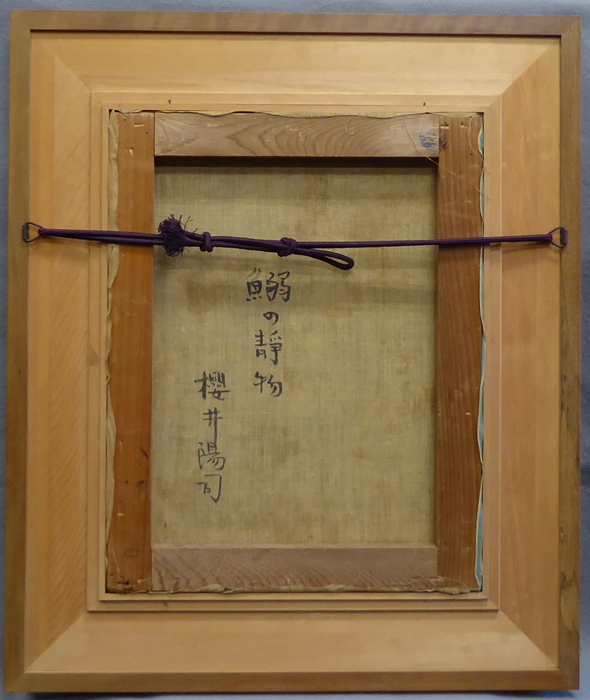 鰯の靜物
櫻井陽司